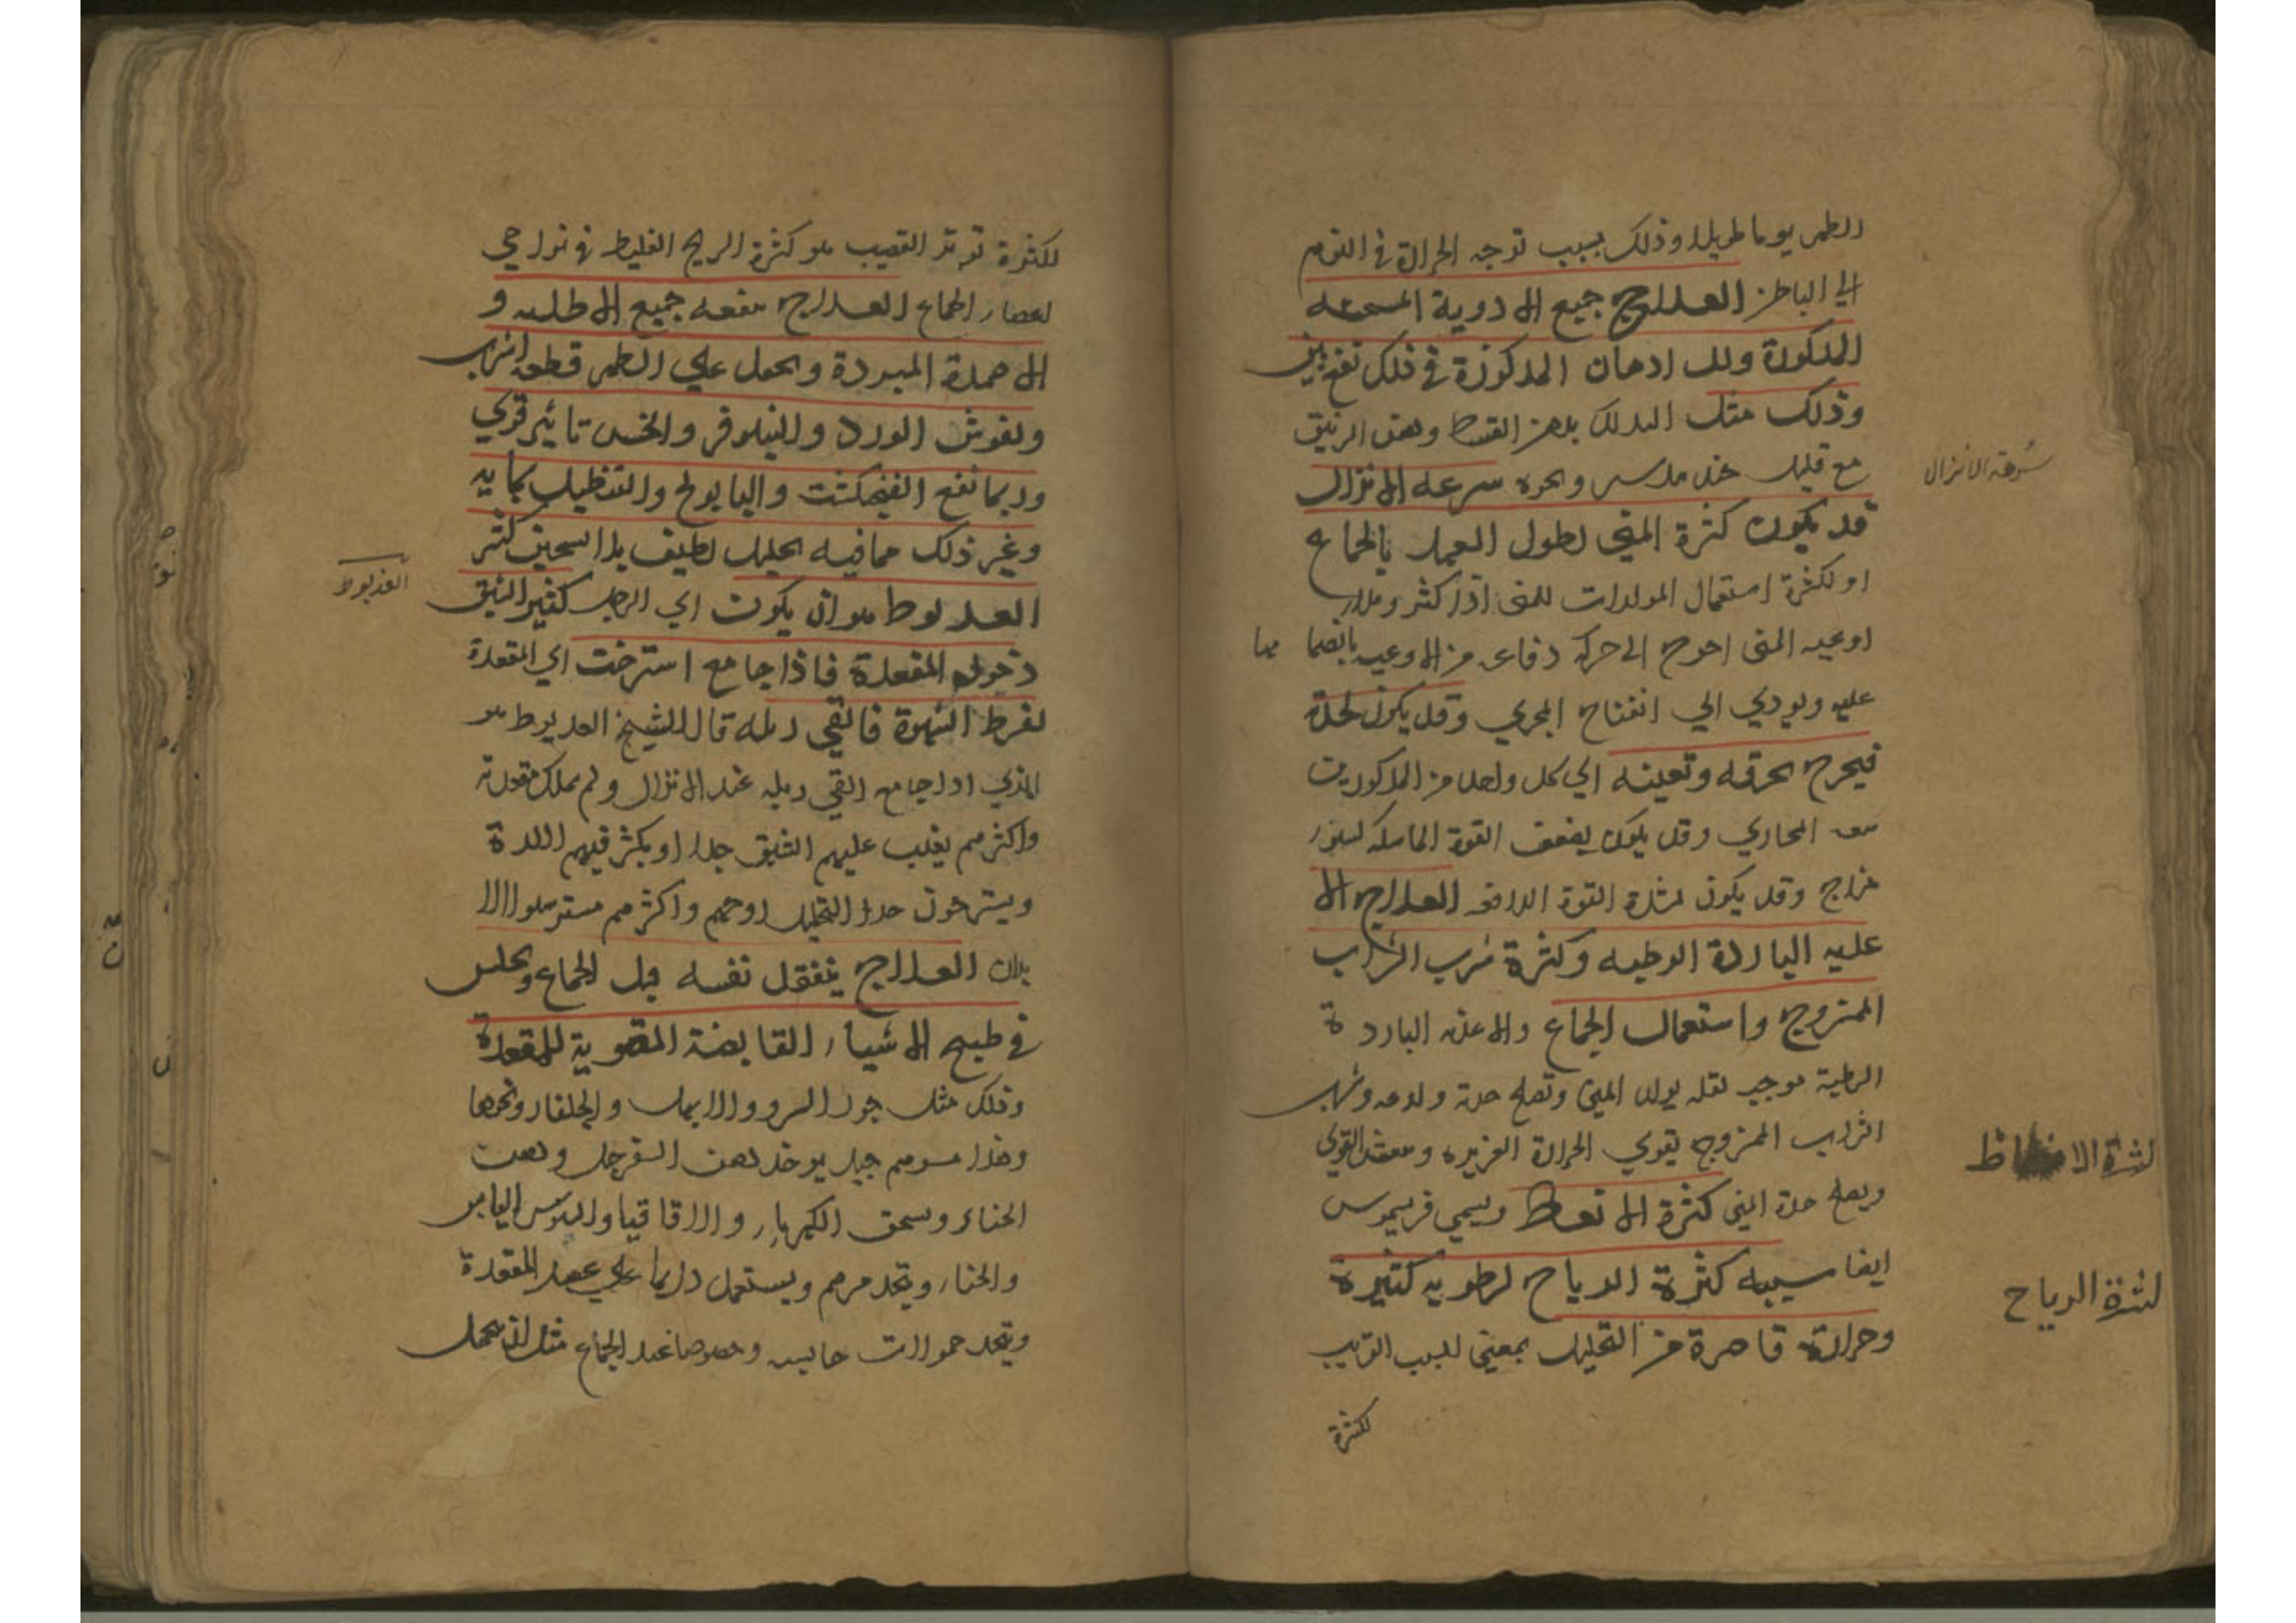 الظهر يوما طويلا وذلك بسبب توجه الحرارة في النوم
الي الباطن العلاج جميع الادوية المسخنه
المذكورة وللـ ادهان المذكورة في ذلك نفع بين
وذلك مثل الدلك بدهن القسط ودهن الزنبق
مع قليل ونحوه سرعه الانزال
سرعة الانزال
قد يكون كثرة المني لطول العهد بالجماع
او لكثرة استعمال المولدات للمني اذا كثر وملا
اوعيه المني احوج الي حركة دفاعه من الاوعيه بانضمامها
عليه ويودي الي انفتاح المجري وقد يكون لحدة
فيخرج بحرقه وتعينه الي كل واحد من المذكورين
سعه المجاري وقد يكون لضعف القوة الماسكه لسوء
مزاج وقد يكون لشدة القوة الدافعه العلاج الا
عليه الباردة الرطبه وكثرة شرب الشراب
الممزوج واستعمال الجماع والاغذيه الباردة
الرطبة توجب تولد المني وتصلح حدته ولذعه وشرب
الشراب الممزوج يقوي الحرارة الغريزيه القوي
ويصلح حدة المني كثرة الانعاظ ويسمي فريسموس
كثرة الانعاظ
ايضا سببه كثرة الرياح لرطوبه كثيرة
كثرة الرياح
وحرارة قاصرة من التحليل بمعني للسبب القريب
لكثرة
لكثرة توتر القضيب هو كثرة الريح الغليظ في نواحي
اعضاء الجماع العلاج ينفعه جميع الاطليه و
الاضمدة المبردة ويحمل علي الظهر قطعه اسرب
ولفرش الورد والنيلوفر والخس تاثير قوي
وربما نفع الفنجنكشت والبابونج والتنطيل بمايه
وغير ذلك مما فيه تحليل لطيف بلا تسخين كثير
العذيوط
العذيوط هو ان يكون اي الرجل كثير الشبق
رخو المقعدة فاذا جامع استرخت اي المقعدة
لفرط الشهوة فالقي زبله قال الشيخ العذيوط هو
الذي اذا جامع القي زبله عند الانزال ولم يملك مقعدته
واكثرهم يغلب عليهم الشبق جدا او يكثر فيهم اللذة
ويسترخون جدا لتحليل روحهم واكثرهم مسترهلوا الا
بدان العلاج يتفقد نفسه قبل الجماع ويجلس
في طبيخ الاشياء القابضة المقوية للمقعدة
وذلك مثل جوز السرو والابهل والجلنار ونحوها
وهذا مرهم جيد يوخذ دهن السفرجل ودهن
الحناء ويسحق الكهرباء والاقاقيا اليابس
والحناء ويتخذ مرهم ويستعمل دايما علي عضل المقعدة
ويتخذ حمولات حابسه وخصوصا عند الجماع مثل ان يتحمل